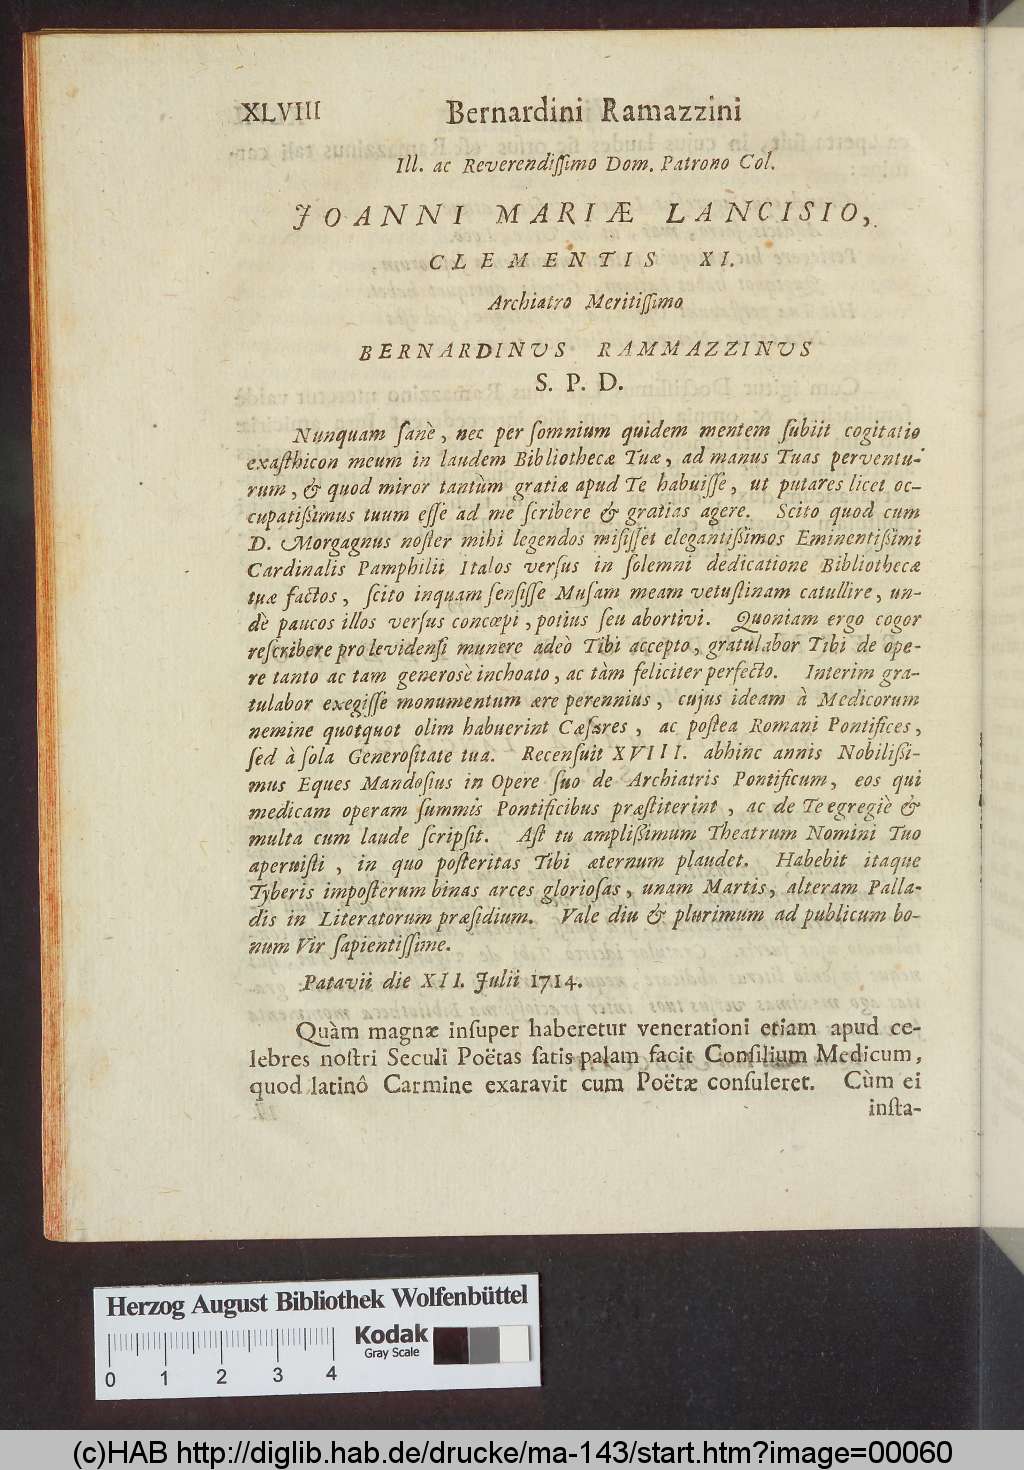 XLVIII Bernardini Ramazzini
Ill. ac Reverendiſſimo Dom. Patrono Col.
JOANNI MARIÆ LANCISIO,
CLEMENTIS XI.
Archiatro Meritiſſimo
BERNARDINVS RAMMAZZINVS
S. P. D.
Nunquam ſanè, nec per ſomnium quidem mentem ſubiit cogitatio
exaſthicon meum in laudem Bibliothecæ Tuæ, ad manus Tuas perventu-
rum, & quod miror tantùm gratiæ apud Te habuiſſe, ut putares licet oc-
cupatißimus tuum eſſe ad me ſcribere & gratias agere. Scito quod cum
D. Morgagnus noſter mihi legendos miſiſſet elegantißimos Eminentißimi
Cardinalis Pamphilii Italos verſus in ſolemni dedicatione Bibliothecæ
tuæ factos, ſcito inquam ſenſiſſe Muſam meam vetuſtinam catullire, un-
dè paucos illos verſus concœpi, potius ſeu abortivi. Quoniam ergo cogor
reſcribere pro levidenſi munere adeò Tibi accepto, gratulabor Tibi de ope-
re tanto ac tam generosè inchoato, ac tàm feliciter perfecto. Interim gra-
tulabor exegiſſe monumentum ære perennius, cujus ideam à Medicorum
nemine quotquot olim habuerint Cæſares, ac poſtea Romani Pontifices,
ſed à ſola Generoſitate tua. Recenſuit XVIII. abhinc annis Nobilißi-
mus Eques Mandoſius in Opere ſuo de Archiatris Pontificum, eos qui
medicam operam ſummis Pontificibus præſtiterint, ac de Te egregiè &
multa cum laude ſcripſit. Aſt tu amplißimum Theatrum Nomini Tuo
aperuiſti, in quo poſteritas Tibi æternum plaudet. Habebit itaque
Tyberis impoſterum binas arces glorioſas, unam Martis, alteram Palla-
dis in Literatorum præſidium. Vale diu & plurimum ad publicum bo-
num Vir ſapientiſſime.
Patavii die XII. Julii 1714.
Quàm magnæ inſuper haberetur venerationi etiam apud ce-
lebres noſtri Seculi Poëtas ſatis palam facit Conſilium Medicum,
quod latinô Carmine exaravit cum Poëtæ conſuleret. Cùm ei
inſta-
Herzog August Bibliothek Wolfenbüttel
Kodak
Gray Scale
0 1 2 3 4
(c)HAB http://diglib.hab.de/drucke/ma-143/start.htm?image=00060